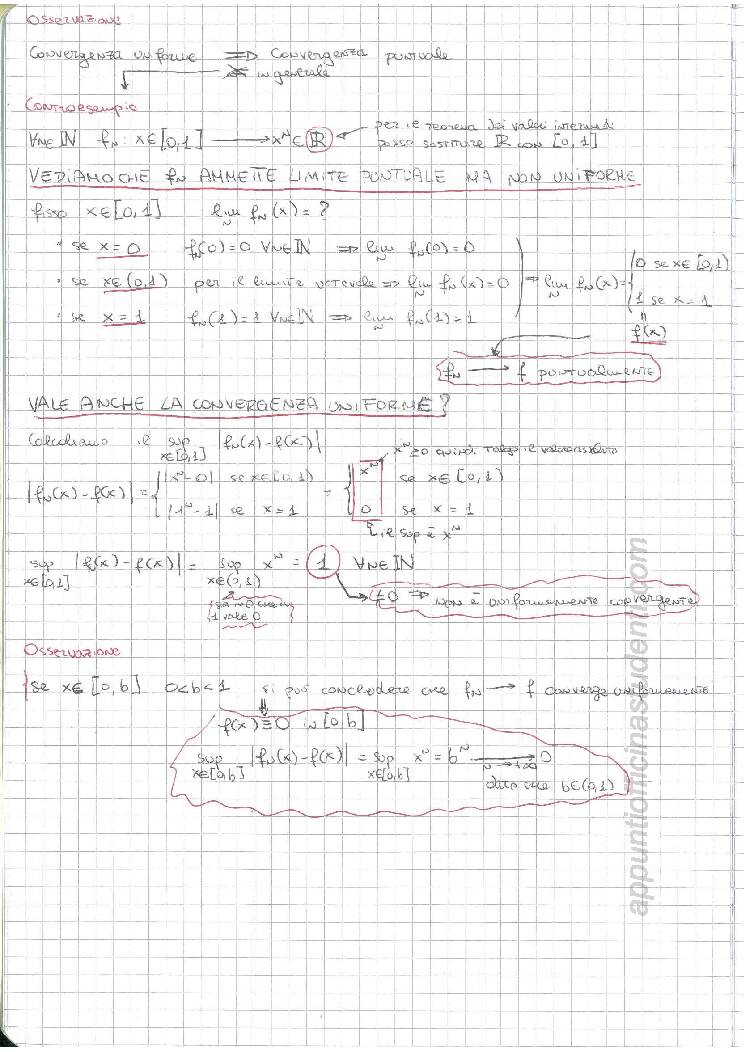 Osservazione
Convergenza uniforme ⟹ Convergenza puntuale
⟸̸ in generale
Controesempio
∀N∈ℕ f_N : x∈[0,1] ⟶ x^N ∈ ℝ ← per il teorema dei valori intermedi
posso sostituire ℝ con [0,1]
VEDIAMO CHE f_N AMMETTE LIMITE PUNTUALE MA NON UNIFORME
fisso x∈[0,1] lim_N f_N(x) = ?
• se x = 0 f_N(0)=0 ∀N∈ℕ ⟹ lim_N f_N(0)=0
• se x∈(0,1) per il limite notevole ⟹ lim_N f_N(x)=0 ⟹ lim_N f_N(x)= { 0 se x∈[0,1)
1 se x=1
• se x = 1 f_N(1)=1 ∀N∈ℕ ⟹ lim_N f_N(1)=1
= f(x)
f_N ⟶ f puntualmente
VALE ANCHE LA CONVERGENZA UNIFORME?
Calcoliamo il sup_{x∈[0,1]} |f_N(x)-f(x)|
x^N ≥0 quindi tolgo il valore assoluto
|f_N(x)-f(x)| = { |x^N-0| se x∈[0,1) = { x^N se x∈[0,1)
|1^N-1| se x=1 0 se x = 1
il sup è x^N
sup_{x∈[0,1]} |f(x)-f(x)| = sup_{x∈(0,1)} x^N = 1 ∀N∈ℕ
1 vale 0
≠0 ⟹ non è uniformemente convergente
Osservazione
se x∈[0,b] 0<b<1 si può concludere che f_N ⟶ f converge uniformemente
f(x)≡0 in [0,b]
sup_{x∈[0,b]} |f_N(x)-f(x)| = sup_{x∈[0,b]} x^N = b^N ⟶_{N→+∞} 0
dato che b∈(0,1)
appuntiofficinastudenti.com